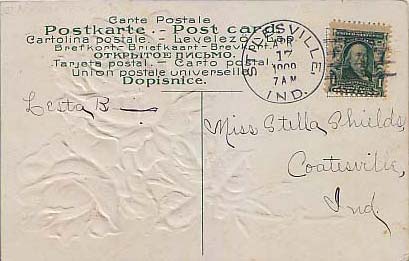 Carte Postale
Postkarte - - Post card
Cartolina postale - Levelező-
Brefkort - Briefkaart - Brevk
ОТКРЫТОЕ ПИСЬМО.
Tarjeta postal. - Carto postal
Union postale universelle
Dopisnice.
IND.
APR
17
7 AM
Lesta B
Miss Stella Shields,
Coatesville,
Ind.